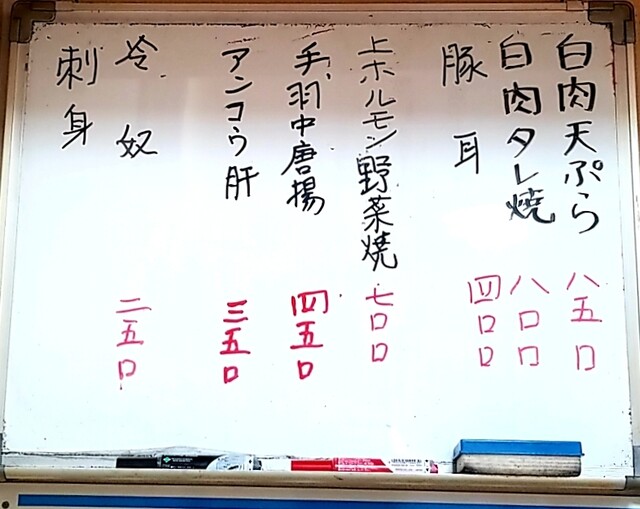 白肉天ぷら 八五〇
白肉タレ焼 八〇〇
豚耳 四〇〇
上ホルモン野菜焼 七〇〇
手羽中唐揚 四五〇
アンコウ肝 三五〇
冷奴 二五〇
刺身